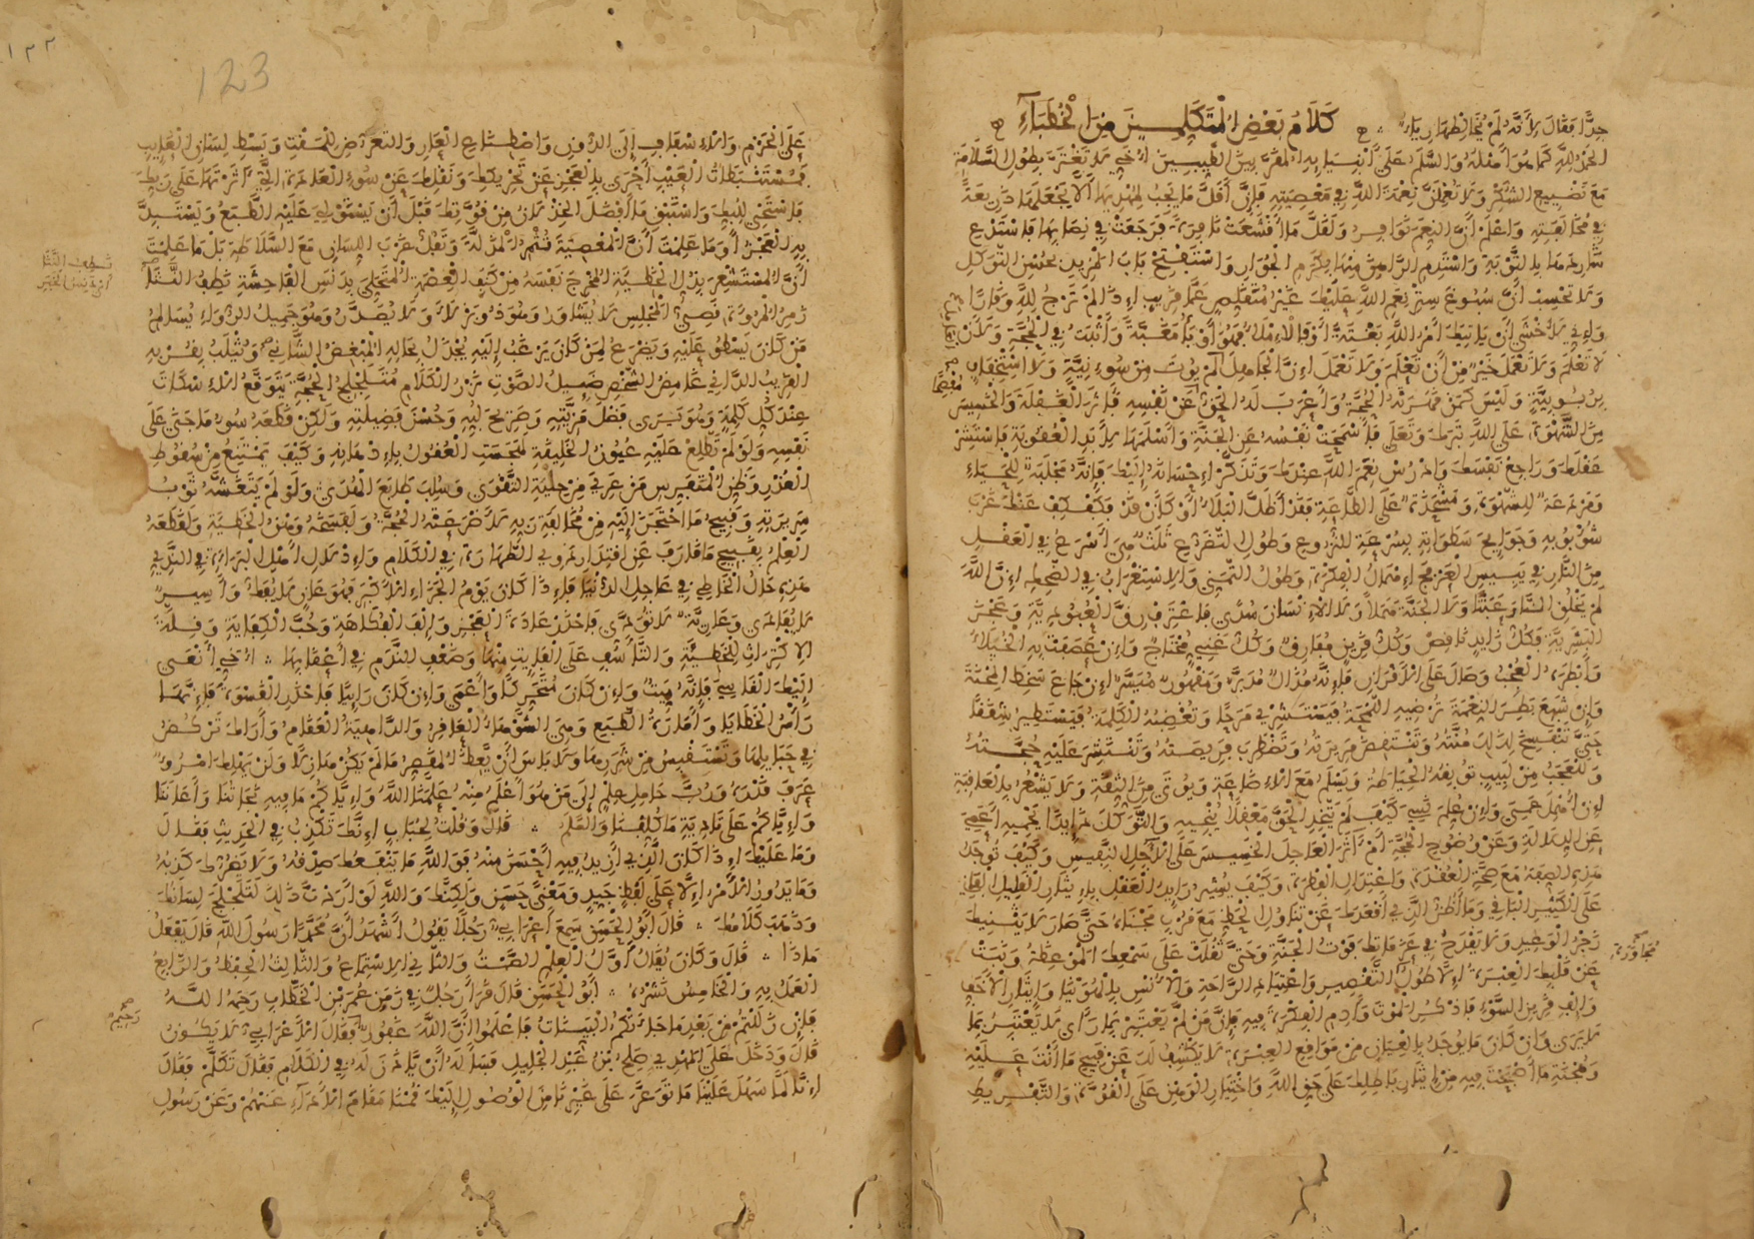 جدا فقال لأنه لم يخالطها رياء كلام بعض المتكلمين من الخطباء
الحمد لله كما هو أهله والسلام على أنبيائه المقربين الطيبين أخي لا تغترن بطول السلامة
مع تضييع الشكر ولا تعملن نعمة الله في معصيته فإن أقل ما يجب لمهديها ألا تجعلها ذريعة
في مخالفته واعلم أن النعم نوافر ولقل ما أقشعت نافرة فرجعت في نصابها فاستدع
شاردها بالتوبة واستدم الراهن منها بكرم الجوار واستفتح باب المزيد بحسن التوكل
ولا تحسب أن سبوغ ستر نعم الله عليك غير متقلص عما قريب إذا لم ترج لله وقارا
وإني لأخشى أن يأتيك أمر الله بغتة أو بالإملاء فهو أوبأ مغبة وأثبت في الحجة ولأن
لا تعلم ولا تعمل خير من أن تعلم ولا تعمل إن الجاهل لم يؤت من سوء نية ولا استخفاف
بربوبية وليس كمن قهرته الحجة وأعرب له الحق عن نفسه فآثر الغفلة والخسيس
من الشهوة على الله تبارك وتعلى فأسمحت نفسه عن الجنة وأسلمها لأبد العقوبة فاستشر
عقلك وراجع نفسك وادرس نعم الله عندك وتذكر إحسانه إليك فإنه مجلبة للحياء
ومردعة للشهوة ومشحذة على الطاعة فقد أظل البلاء أو كأن قد فكفكف عنك غرب
شؤبوبه وجوايح سطواته بسرعة النزوع وطول التضرع ثلث هي أسرع في العقل
من النار في يبيس العرفج إهمال الفكرة وطول التمني والاستغراب في الضحك إن الله
لم يخلق النار عبثا ولا الجنة هملا ولا الإنسان سدى فاعترف رق العبودية وعجز
البشرية فكل زايد ناقص وكل قرين مفارق وكل غني محتاج وإن عصفت به الخيلاء
وأبطره العجب وصال على الأقران فإنه مذال مدبر ومقهور ميسر إن جاع سخط المحنة
وإن شبع بطر النعمة ترضيه اللمحة فيستشري مرحا وتغضبه الكلمة فيستطير شققا
حتى تنفسخ لذلك منته وتنتقض مريرته وتضطرب فريصته وتنتشر عليه حجته
وللعجب من لبيب توبقه الحياطة ويسلم مع الإضاعة ويوتى من الثقة ولا يشعر بالعاقبة
إن أهمل عمي وإن علم نسي كيف لم يتخذ الحق معقلا ينجيه والتوكل ذايدا يحميه أعمي
عن الدلالة وعن وضوح الحجة أم آثر العاجل الخسيس على الآجل النفيس وكيف توجد
هذه الصفة مع صحة العقدة واعتدال الفطرة وكيف يشير رايد العقل بإيثار القليل الفاني
على الكثير الباقي وما أظن الذي أقعدك عن تناول الحظ مع قرب مجتناه حتى صار لا يثنيك
زجر الوعيد ولا يقدح في عزماتك فوت الجنة وحتى ثقلت على سمعك الموعظة ونبت
عن قلبك العبرة إلا طول التقصير واعتياد الراحة والأنس بالهوينا وإيثار الأخف
والف قرين السوء فاذكر الموت وأدم الفكرة فيه فإن من لم يعتبر بما رأى لم يعتبر بما
لا يرى وإن كان ما يوجد بالعيان من مواقع العبرة لا يكشف لك عن قبيح ما أنت عليه
وهجنة ما أصبحت فيه من إيثار باطلك على حق الله واختيار الوهن على القوة والتفريط
123
على الحزم والإسفاف إلى الدون واصطناع العار والتعرض للمقت وبسط لسان العايب
فمستنبطات الغيب أحرى بالعجز عن تحريكك ونقلك عن سوء العادة التي آثرتها على ربك
فاستحي للبك واستبق ما أفضل الخذلان من قوتك قبل أن يستولي عليه الطبع ويستبد
به العجز أوما علمت أن المعصية تثمر المذلة وتفل غرب اللسان مع السلاطة بل ما علمت
أن المستشعر بذل الخطية المخرج نفسه من كنف العصمة المتحلي بدنس الفاحشة نطف الثناء
زمر المروة قصي المجلس لا يشاور وهو ذو بزلاء ولا يصدر وهو جميل الرواء يسالم
من كان يسطو عليه ويضرع لمن كان يرغب إليه يجذل بحاله المبغض الشاني ويثلب بقربه
القريب الداني غامض الشخص ضييل الصوت نزر الكلام متلجلج الحجة يتوقع الإسكات
عند كل كلمة وهو يرى فضل مزيته وصريح لبه وحسن فضيلته ولكن قطعه سوء ما جنى على
نفسه ولو لم تطلع عليه عيون الخليقة لهجست العقول بإدهانه وكيف يمتنع من سقوط
القدر وظن المتفرس من عري من حلية التقوى وسلب طابع الهدى ولو لم يتغشه ثوب
سريرته وقبيح ما احتجن إليه من مخالفة ربه لأضرعته الحجة ولفسخه وهن الخطية ولقطعه
العلم بقبيح ما قارف عن اقتدار ذوي الطهارة في الكلام وإدلال أهل البراءة في الندي
هذه حال الخاطي في عاجل الدنيا فإذا كان يوم الجزاء الأكبر فهو عان لا يفك وأسير
لا يفادى وعارية لا تودى فاحذر عادة العجز والف الفكاهة وحب الكفاية وقلة
الاكتراث للخطية والتأسف على الفايت منها وضعف الندم في أعقابها أخي أنعى
إليك القاسي فإنه ميت وإن كان متحركا وأعمى وإن كان رايا فاحذر القسوة فإنها
رأس الخطايا وأمارة الطبع وهي الشوهاء العاقر والداهية العقام وأراك تركض
في حبايلها وتستقبس من شررها ولا باس أن يعظ المقصر ما لم يكن هازلا ولن يهلك امرؤ
عرف قدره ورب حامل علم إلى من هو أعلم منه علمنا الله وإياكم ما فيه نجاتنا وأعاننا
وإياكم على تادية ما كلفنا والسلم قال وقلت لحباب إنك تكذب في الحديث فقال
وما عليك إذا كان الذي أزيد فيه أحسن منه فو الله ما ينفعك صدقه ولا يضرك كذبه
وما يدور الأمر إلا على لفظ جيد ومعنى حسن ولكنك والله لو أردت ذلك لتلجلج لسانك
وذهب كلامك قال أبو الحسن سمع أعرابي رجلا يقول أشهد أن محمدا رسول الله قال يفعل
ماذا قال وكان يقال أول العلم الصمت والثاني الاستماع والثالث الحفظ والرابع
العمل به والخامس نشره أبو الحسن قال قرأ رجل في زمن عمر بن الخطاب رحمه الله
فإن زللتم من بعد ما جاءتكم البينات فاعلموا أن الله غفور فقال الأعرابي لا يكون
قال ودخل على المهدي صالح بن عبد الجليل فسأله أن ياذن له في الكلام فقال تكلم فقال
إنا لما سهل علينا ما توعر على غيرنا من الوصول إليك قمنا مقام الأداء عنهم وعن رسول